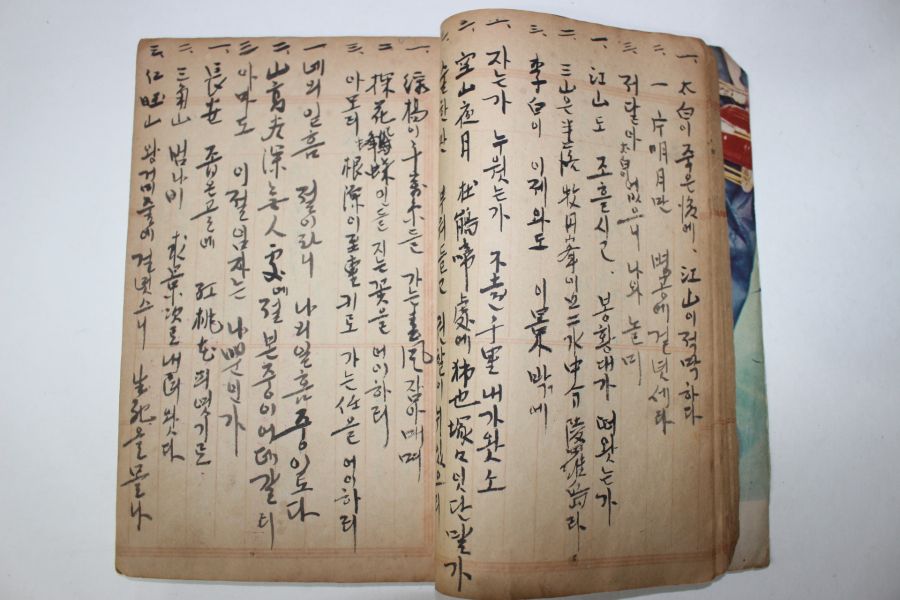 一. 太白이 죽은後에、江山이 적막하다
二. 一片明月만 碧空에 걸녓세라
三. 저달아 太白이 업스니 나와 놀미
一. 江山도 조흘시고、봉황대가 떠왓는가
二 三山은半落 牧丹峯이요 二水中分 陵羅島라
三. 李白이 이제와도 이景 박게
一. 자는가 누웟는가 不遠千里 내가왓소
二. 空山夜月 杜鵑啼處에
一. 綠楊이千萬糸들 가는春風잡아매며
二 探花蜂蝶인들 지는꽃을 어이하리
三. 아모리 根深이 至重키도 가는任을 어이하리
一 네의일홈 절이라니 나의일홈 중이로다
二. 山高谷深 無人處에 절본중이 어데갈리
三 아마도 이절임자는 나뿐인가
一. 長安 좁은골에 紅桃花픠엿기로
二. 三角山 범나비 求景次로내려왓다
三. 仁旺山 왕거미줄에 걸넛스니 生死을몰나